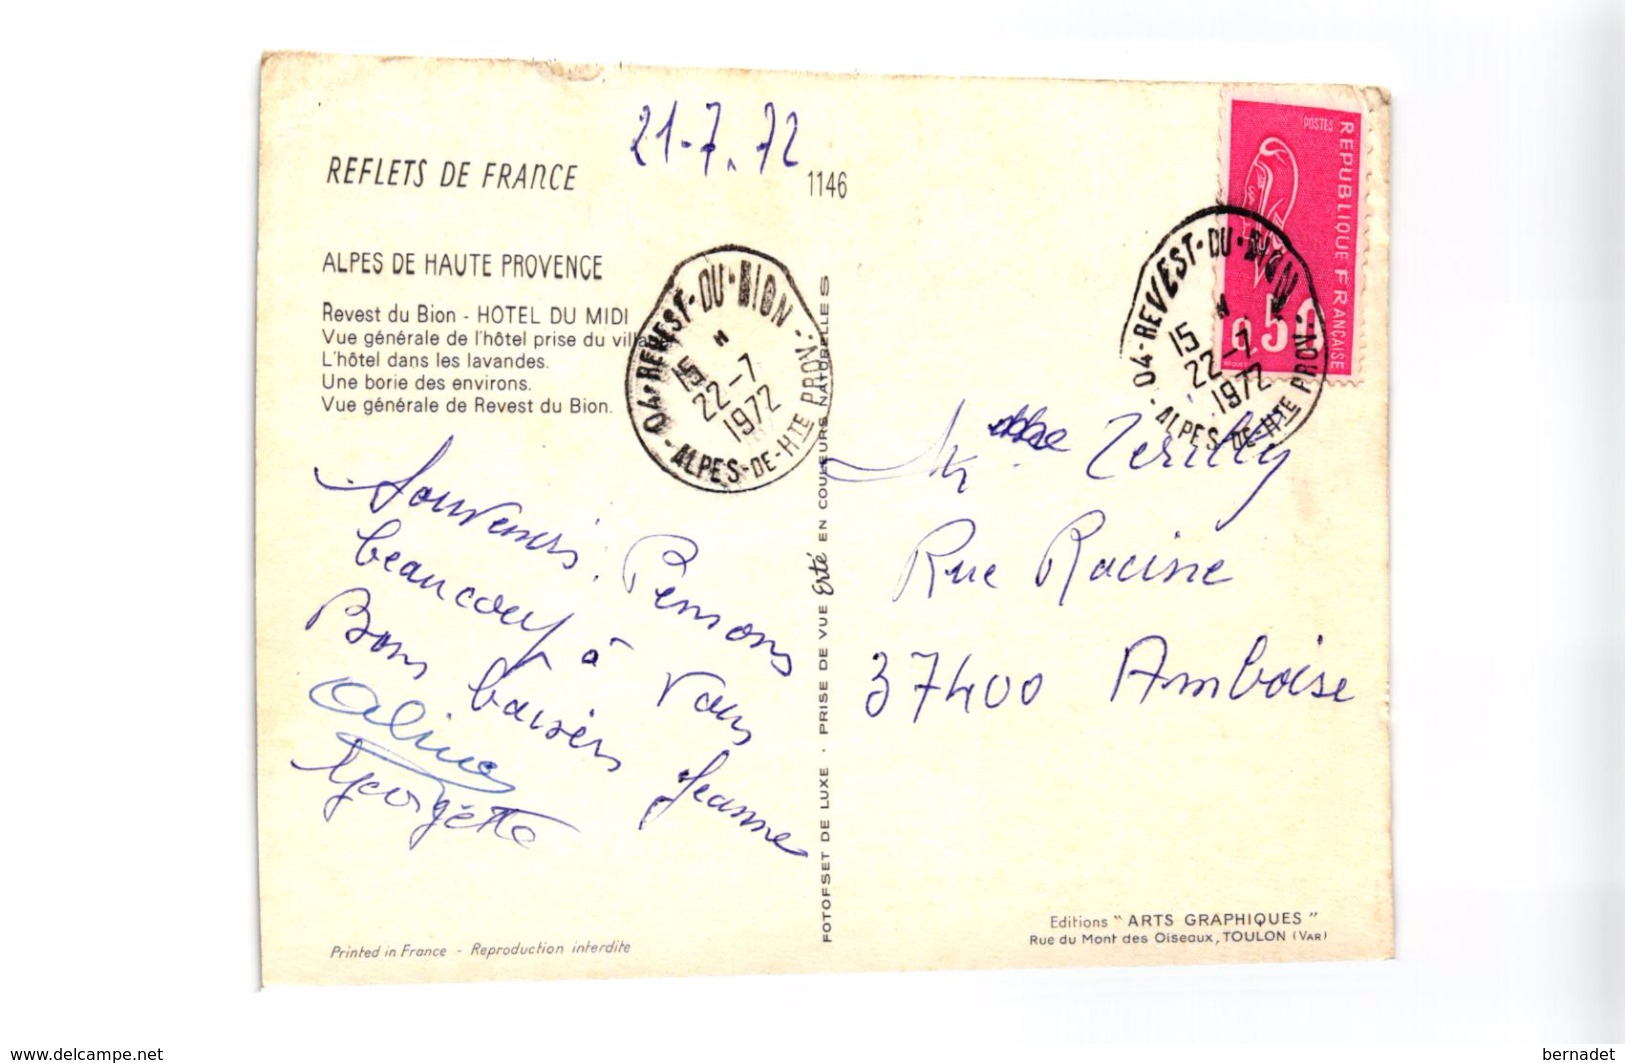 21-7.72
REFLETS DE FRANCE
1146
ALPES DE HAUTE PROVENCE
Revest du Bion - HOTEL DU MIDI
Vue générale de l'hôtel prise du villa
L'hôtel dans les lavandes.
Une borie des environs.
Vue générale de Revest du Bion.
04-REVEST-DU-BION
15 H
22-7
1972
ALPES-DE-HTE PROV.
Souvenirs. Pensons
beaucoup à vous
Bons baisers Jeanne
Aline
Georgette
Printed in France - Reproduction interdite
FOTOFSET DE LUXE . PRISE DE VUE Erté EN COULEURS NATURELLES
POSTES
REPUBLIQUE FRANÇAISE
0,50
04-REVEST-DU-BION
15 H
22-7
1972
ALPES-DE-HTE PROV.
Rue Racine
37400 Amboise
Editions "ARTS GRAPHIQUES"
Rue du Mont des Oiseaux, TOULON (VAR)
www.delcampe.net
bernadet